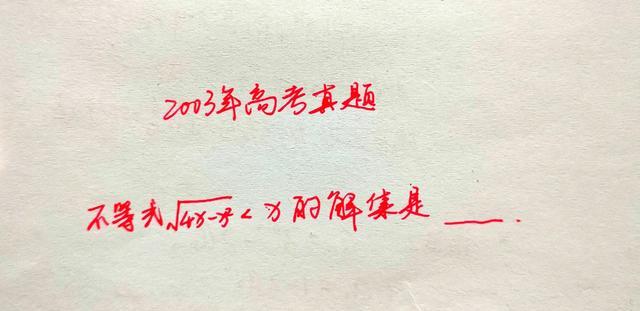 2003年高考真题
不等式√(4x-x²) < x 的解集是 ____.